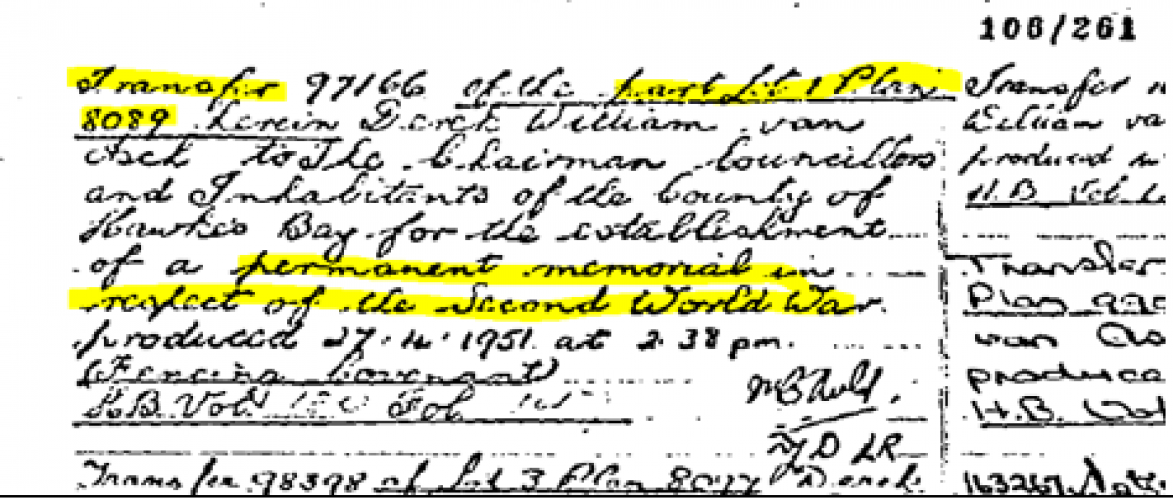 106/261
Transfer 97166 of the part Lot 1 Plan
8089 herein Derek William van
Asch to The Chairman Councillors
and Inhabitants of the County of
Hawke's Bay for the establishment
of a permanent memorial in
respect of the Second World War.
produced 27.4.1951 at 2.38 pm.
Fencing Covenant
H.B. Vol. Fol.
D LR
Transfer 98398 of Lot 3 Plan 8077 Derek
Transfer
William va
produced
H.B. Vol.
Transfer
Plan
van As
produce
H.B. Vol